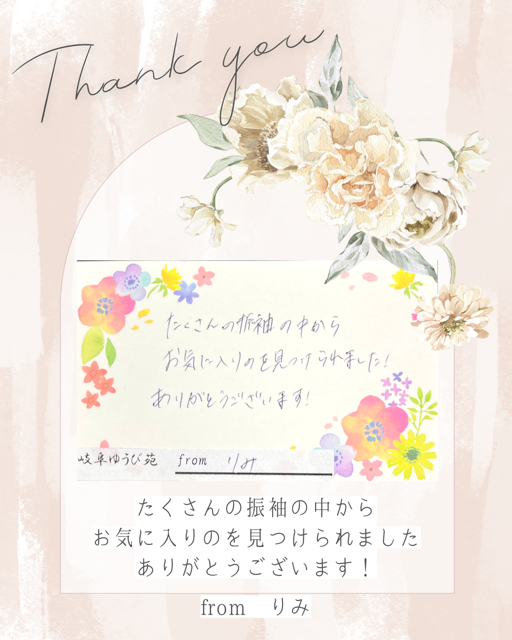 Thank you
たくさんの振袖の中から
お気に入りのを見つけられました!
ありがとうございます!
岐阜ゆうび苑 from りみ
たくさんの振袖の中から
お気に入りのを見つけられました
ありがとうございます！
from りみ